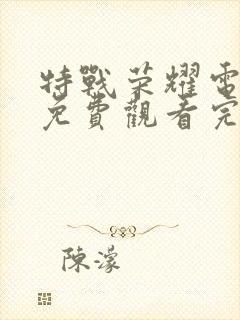 特戰荣耀電
免費觀看完
陳濛